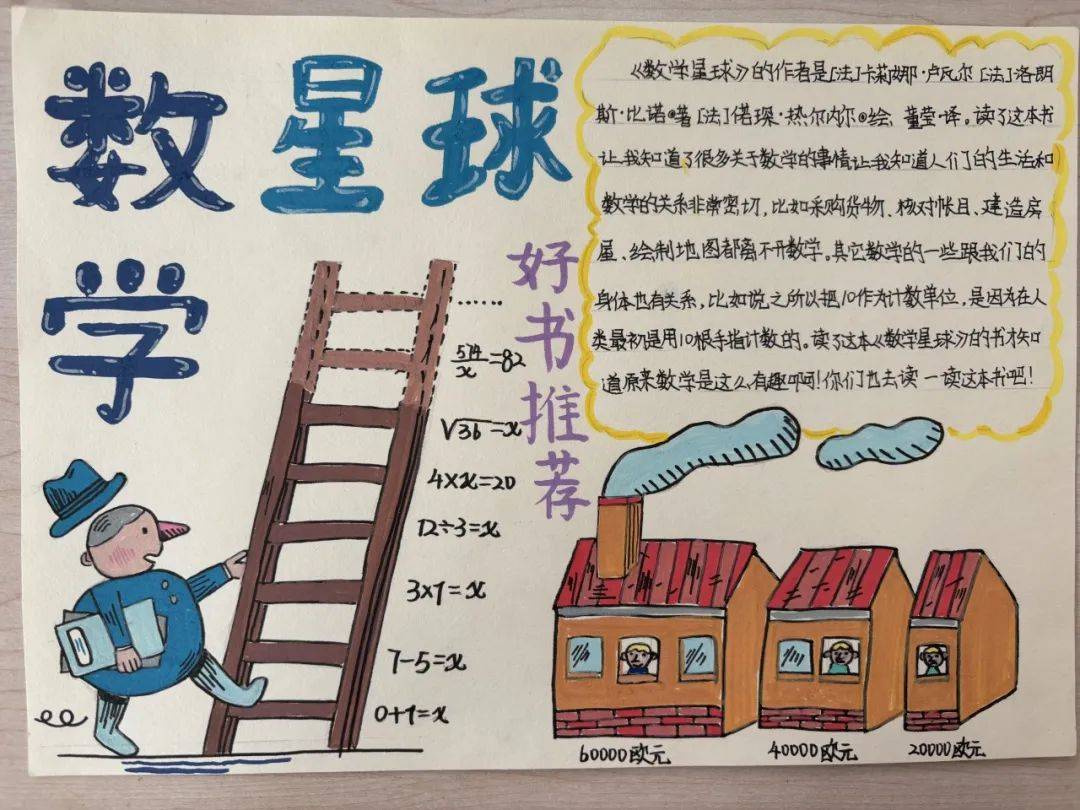 数学星球
好书推荐
《数学星球》的作者是[法]卡莉娜·卢瓦尔[法]洛朗
斯·比诺◎著[法]偌琛·热尔内尔◎绘 董莹·译。读了这本书
让我知道了很多关于数学的事情让我知道人们的生活和
数学的关系非常密切,比如采购货物、核对帐目、建造房
屋、绘制地图都离不开数学。其它数学的一些跟我们的
身体也有关系,比如说之所以把10作为计数单位,是因为在人
类最初是用10根手指计数的。读了这本《数学星球》的书才知
道原来数学是这么有趣啊!你们也去读一读这本书吧!
……
574/x=82
√36=x
4×x=20
12÷3=x
3×7=x
7-5=x
0+1=x
60000欧元
40000欧元
20000欧元